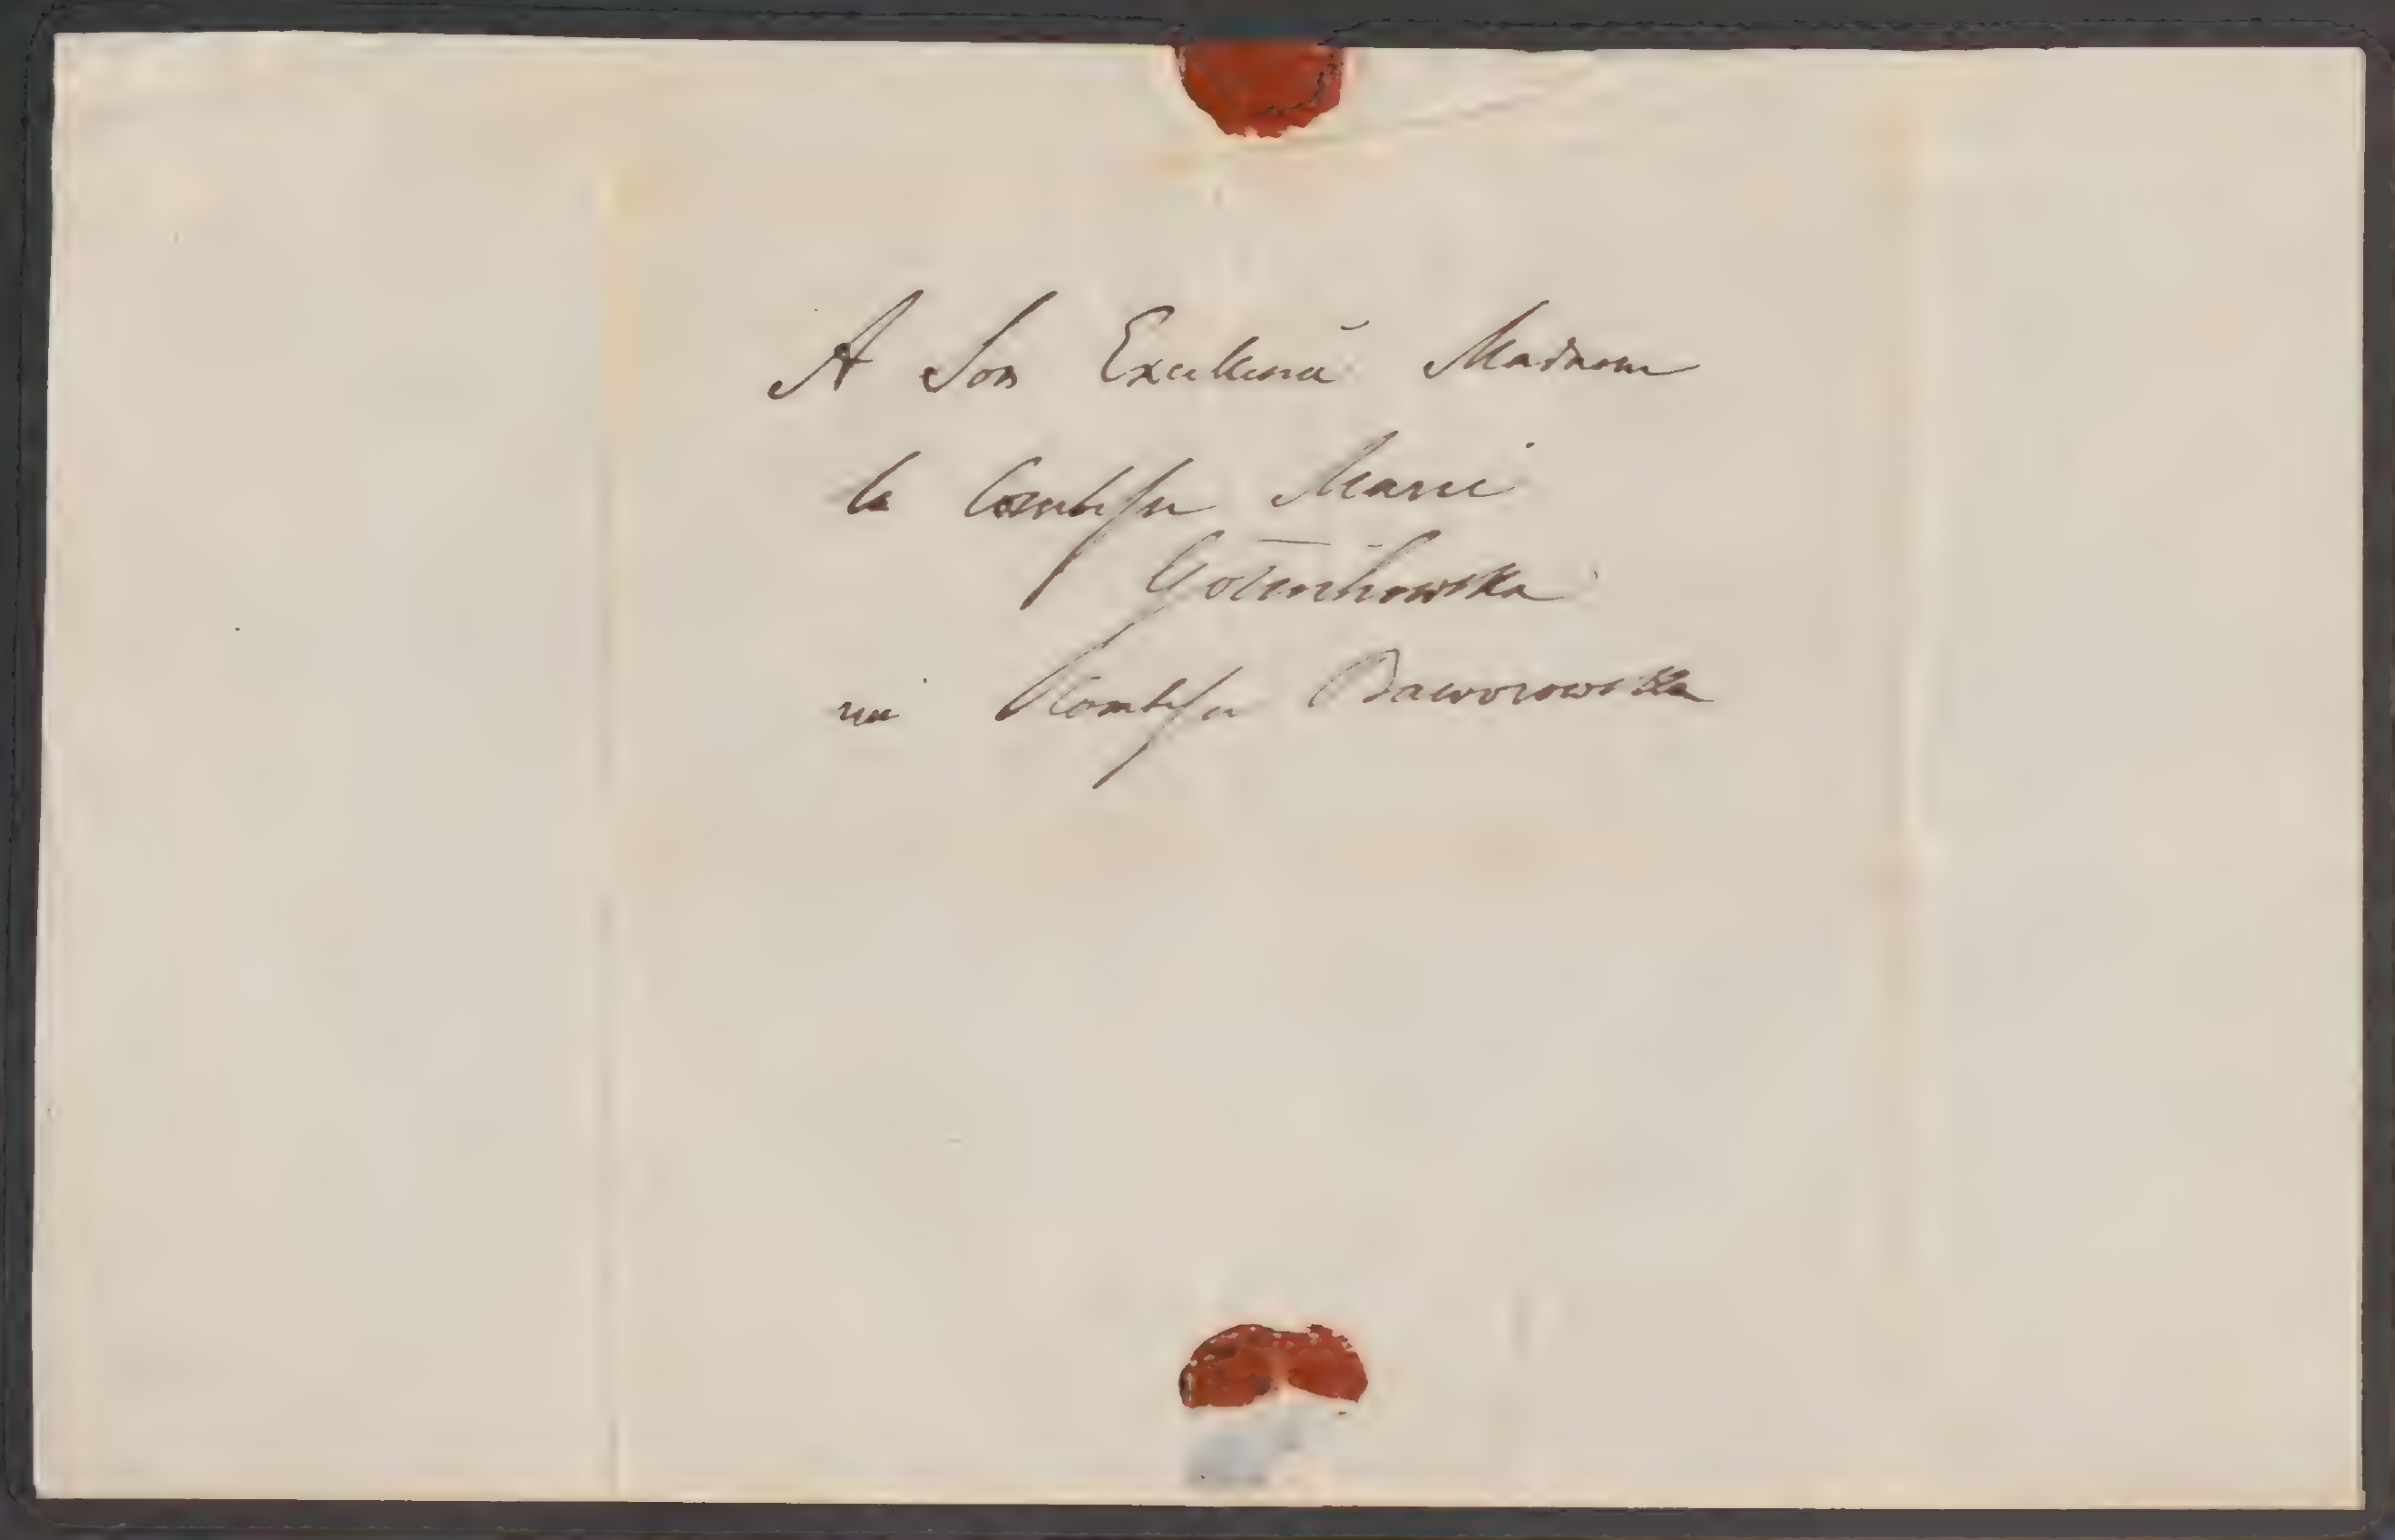 A Son Excellence Madame
la Comtesse Marie
Gołuchowska
née Comtesse Baworowska